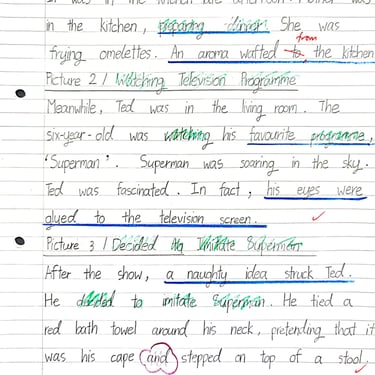 in the kitchen, preparing dinner. She was
from
frying omelettes. An aroma wafted to the kitchen
Picture 2 / Watching Television Programme
Meanwhile, Ted was in the living room. The
six-year-old was watching his favourite programme,
'Superman'. Superman was soaring in the sky.
Ted was fascinated. In fact, his eyes were
glued to the television screen.
Picture 3 / Decided to Imitate Superman
After the show, a naughty idea struck Ted.
He decided to imitate Superman. He tied a
red bath towel around his neck, pretending that it
was his cape and stepped on top of a stool.